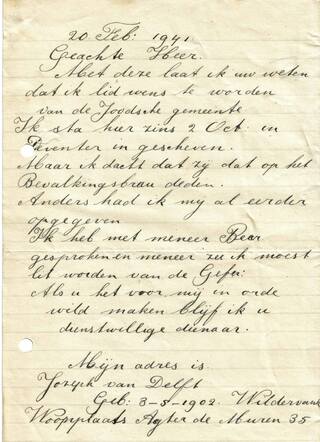 20 Feb: 1941
Geachte Heer.
Met deze laat ik uw weten
dat ik lid wens te worden
van de Joodsche gemeente
Ik sta hier zins 2 Oct. in
Deventer in gescheven.
Maar ik dacht dat zy dat op het
Bevalkingsbrau deden.
Anders had ik my al eerder
opgegeven
Ik heb met meneer Beer
gesproken en meneer zei ik moest
lit worden van de
Als u het voor my in orde
wild maken blijf ik u
dienstwillige dienaar.
Mijn adres is
Jozeph van Delft
Geb: 3-5-1902. Wildervank
Woonplaats Agter de Muren 35